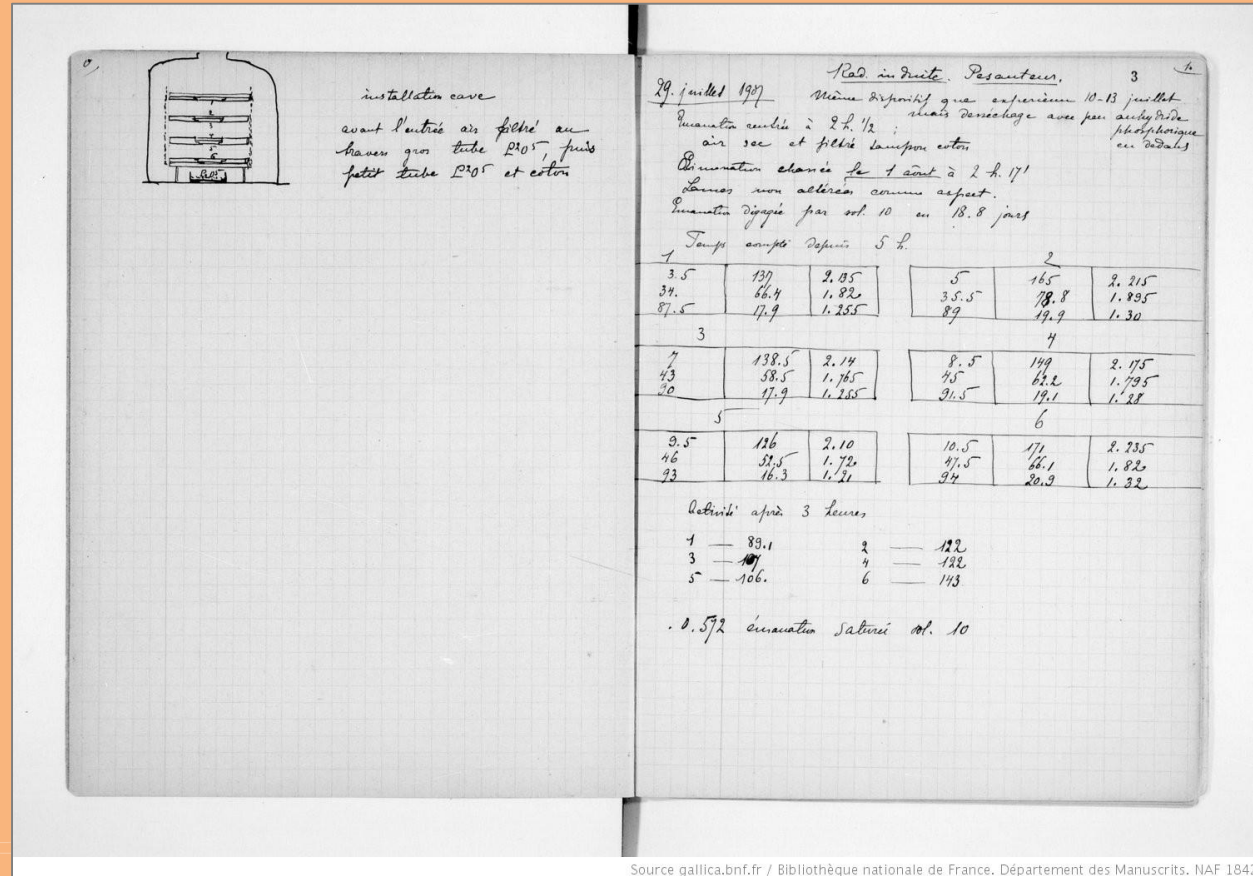 0
installation cave
avant l'entrée air filtré au
travers gros tube P²O⁵, puis
petit tube P²O⁵ et coton
1.
3
Rad. induite. Pesanteur.
29. juillet 1907
Même dispositif que expérience 10-13 juillet
mais desséchage avec peu anhydride
phosphorique
en dedans
Emanation rentrée à 2 h. 1/2 ;
air sec et filtré tampon coton
Emanation chassée le 1 août à 2 h. 17'
Lames non altérées comme aspect.
Emanation dégagée par sol. 10 en 18.8 jours
Temps compté depuis 5 h.
1
3.5 137 2.135
34. 66.4 1.82
87.5 17.9 1.255
2
5 165 2.215
35.5 78.8 1.895
89 19.9 1.30
3
7 138.5 2.14
43 58.5 1.765
90 17.9 1.255
4
8.5 149 2.175
45 62.2 1.795
91.5 19.1 1.28
5
9.5 126 2.10
46 52.5 1.72
93 16.3 1.21
6
10.5 171 2.235
47.5 66.1 1.82
94 20.9 1.32
Activité après 3 heures
1 — 89.1 2 — 122
3 — 4 — 122
5 — 106. 6 — 143
.0.572 émanation saturée sol. 10
Source gallica.bnf.fr / Bibliothèque nationale de France. Département des Manuscrits. NAF 1843